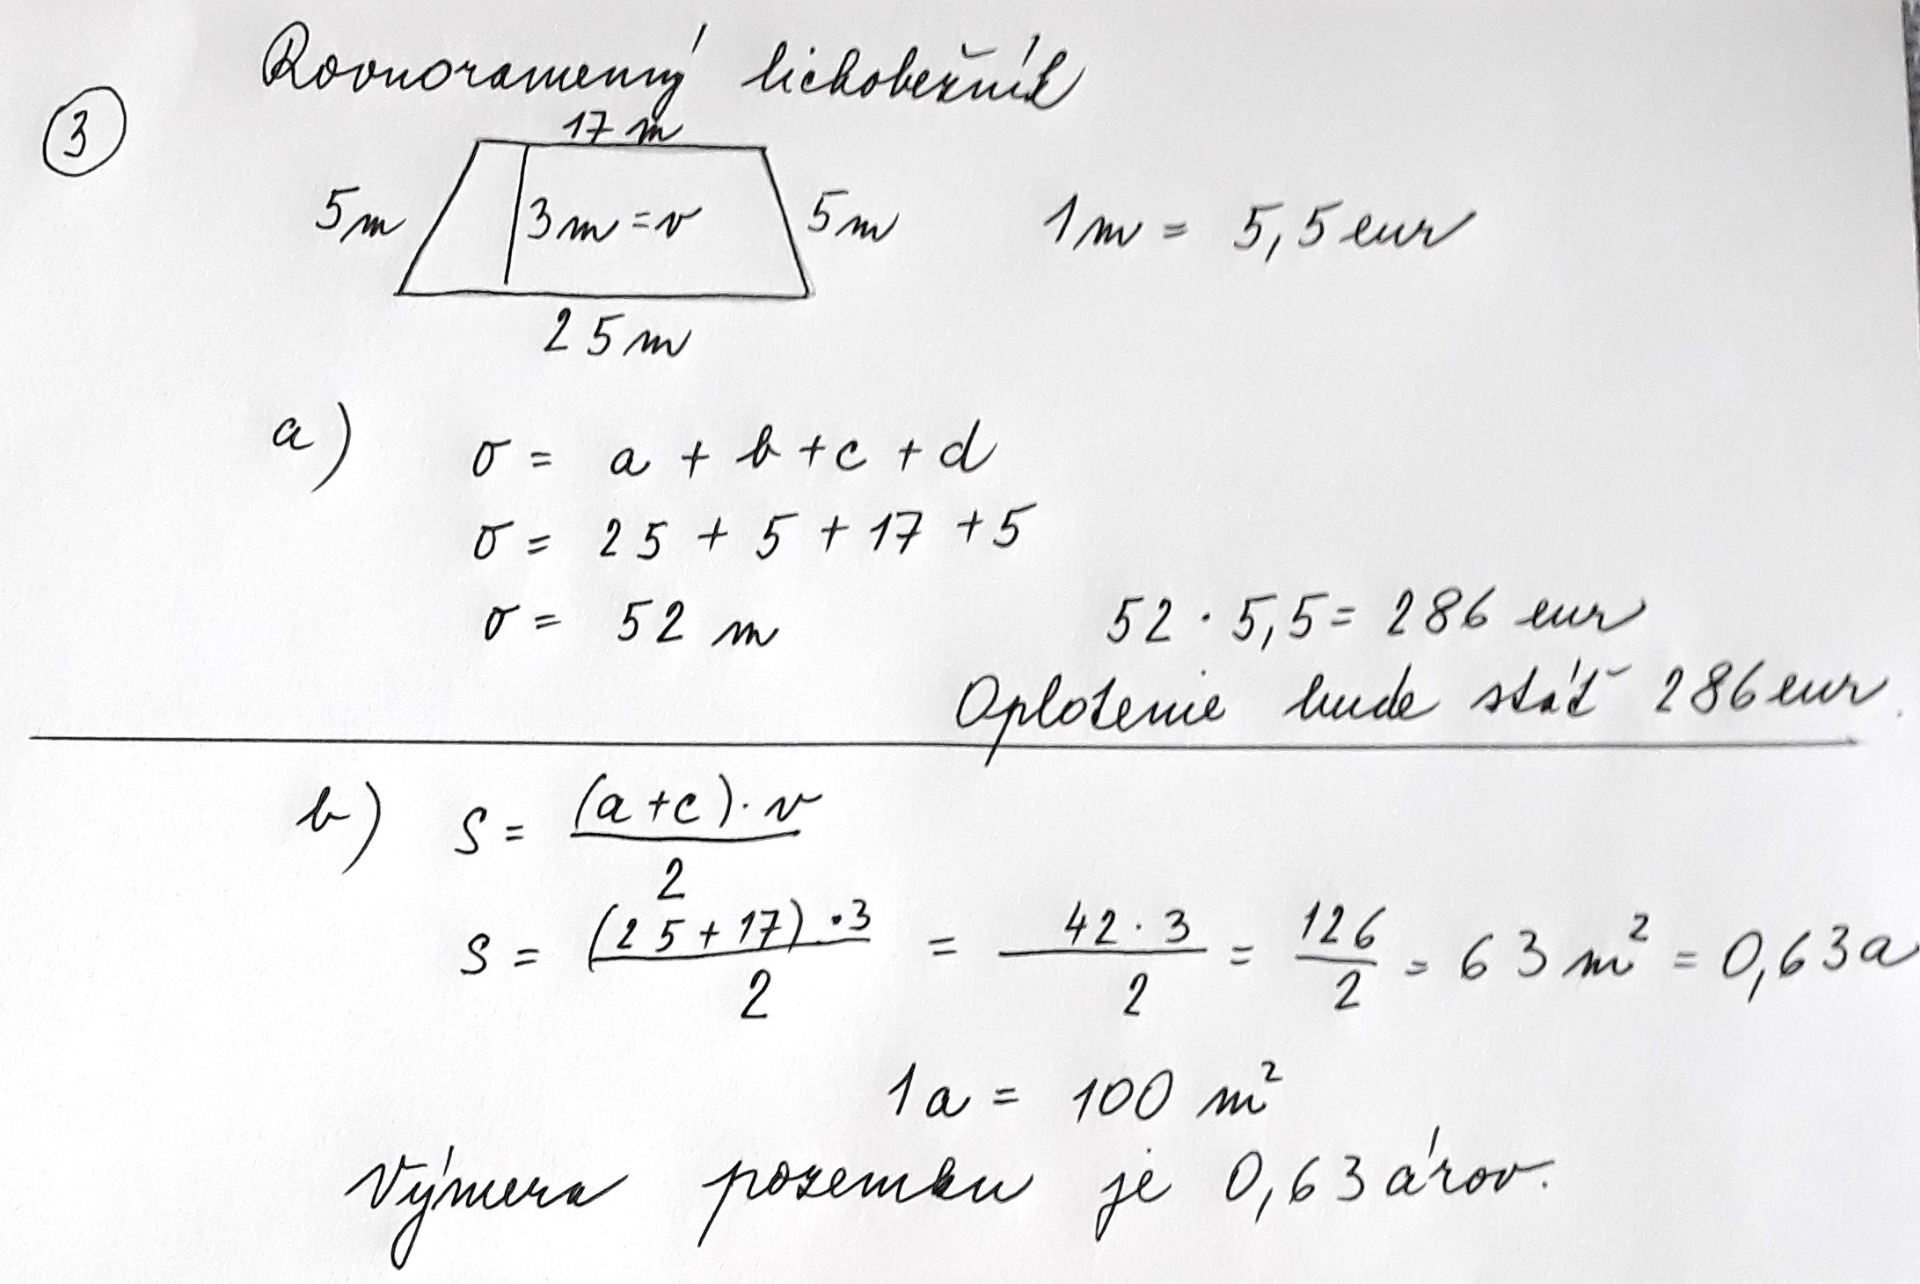 Rovnoramenný lichobežník
3
17 m
5m 3m = v 5m 1m = 5,5 eur
25m
a) o = a + b + c + d
o = 25 + 5 + 17 + 5
o = 52 m 52 · 5,5 = 286 eur
Oplotenie bude stáť 286 eur.
b) S = (a+c) · v / 2
S = (25+17) · 3 / 2 = 42 · 3 / 2 = 126 / 2 = 63 m² = 0,63a
1a = 100 m²
Výmera pozemku je 0,63 árov.